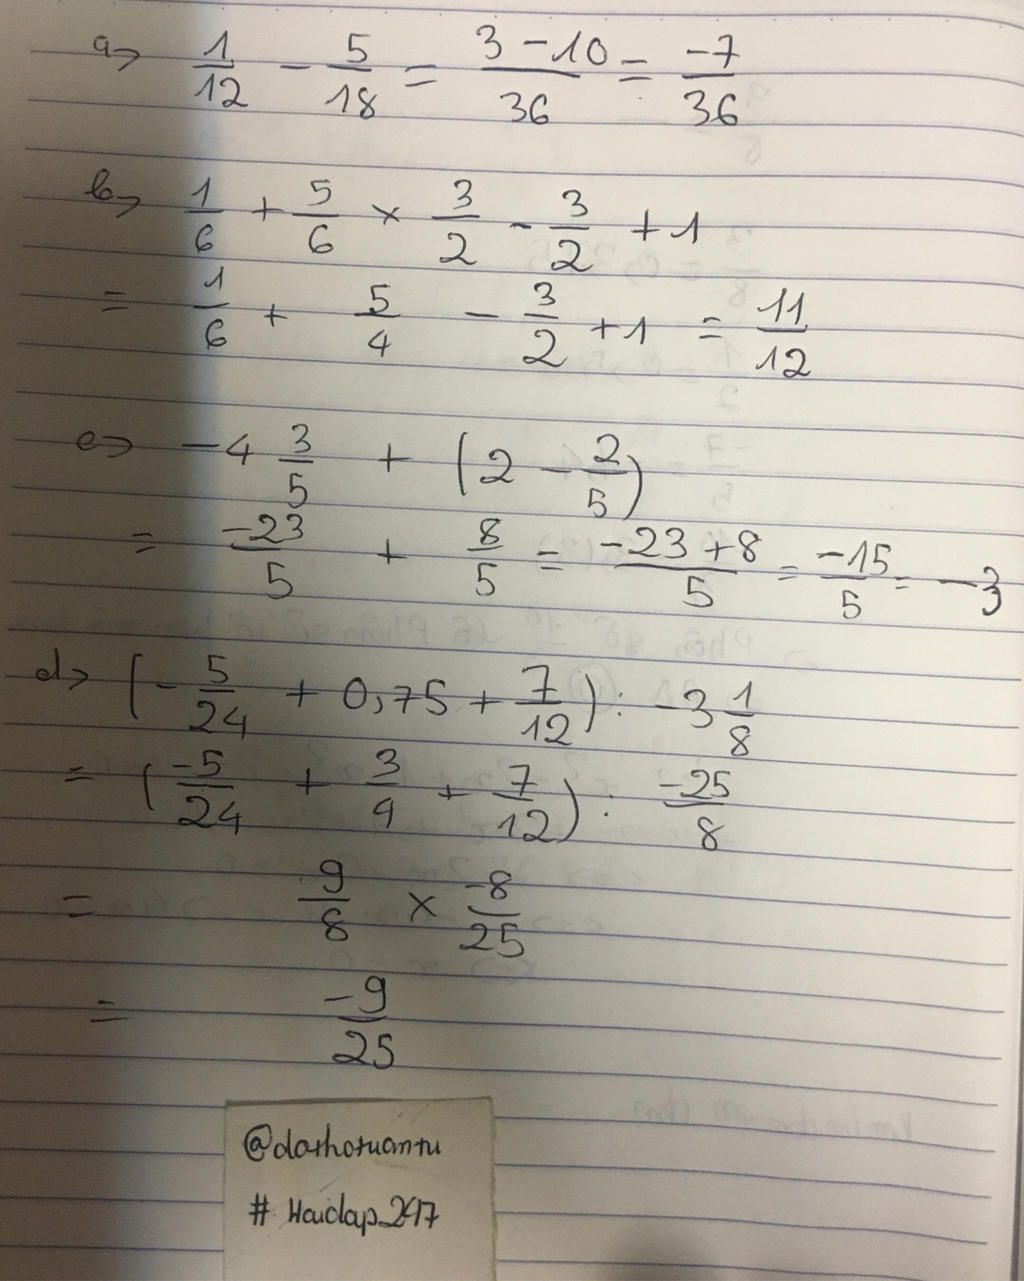 a> 1/12 - 5/18 = (3 - 10)/36 = -7/36
b> 1/6 + 5/6 × 3/2 - 3/2 + 1
= 1/6 + 5/4 - 3/2 + 1 = 11/12
c> -4 3/5 + (2 - 2/5)
= -23/5 + 8/5 = (-23 + 8)/5 = -15/5 = -3
d> (-5/24 + 0,75 + 7/12) : -3 1/8
= (-5/24 + 3/4 + 7/12) : -25/8
= 9/8 × -8/25
= -9/25
@dathotuantu
# Hoidap_247